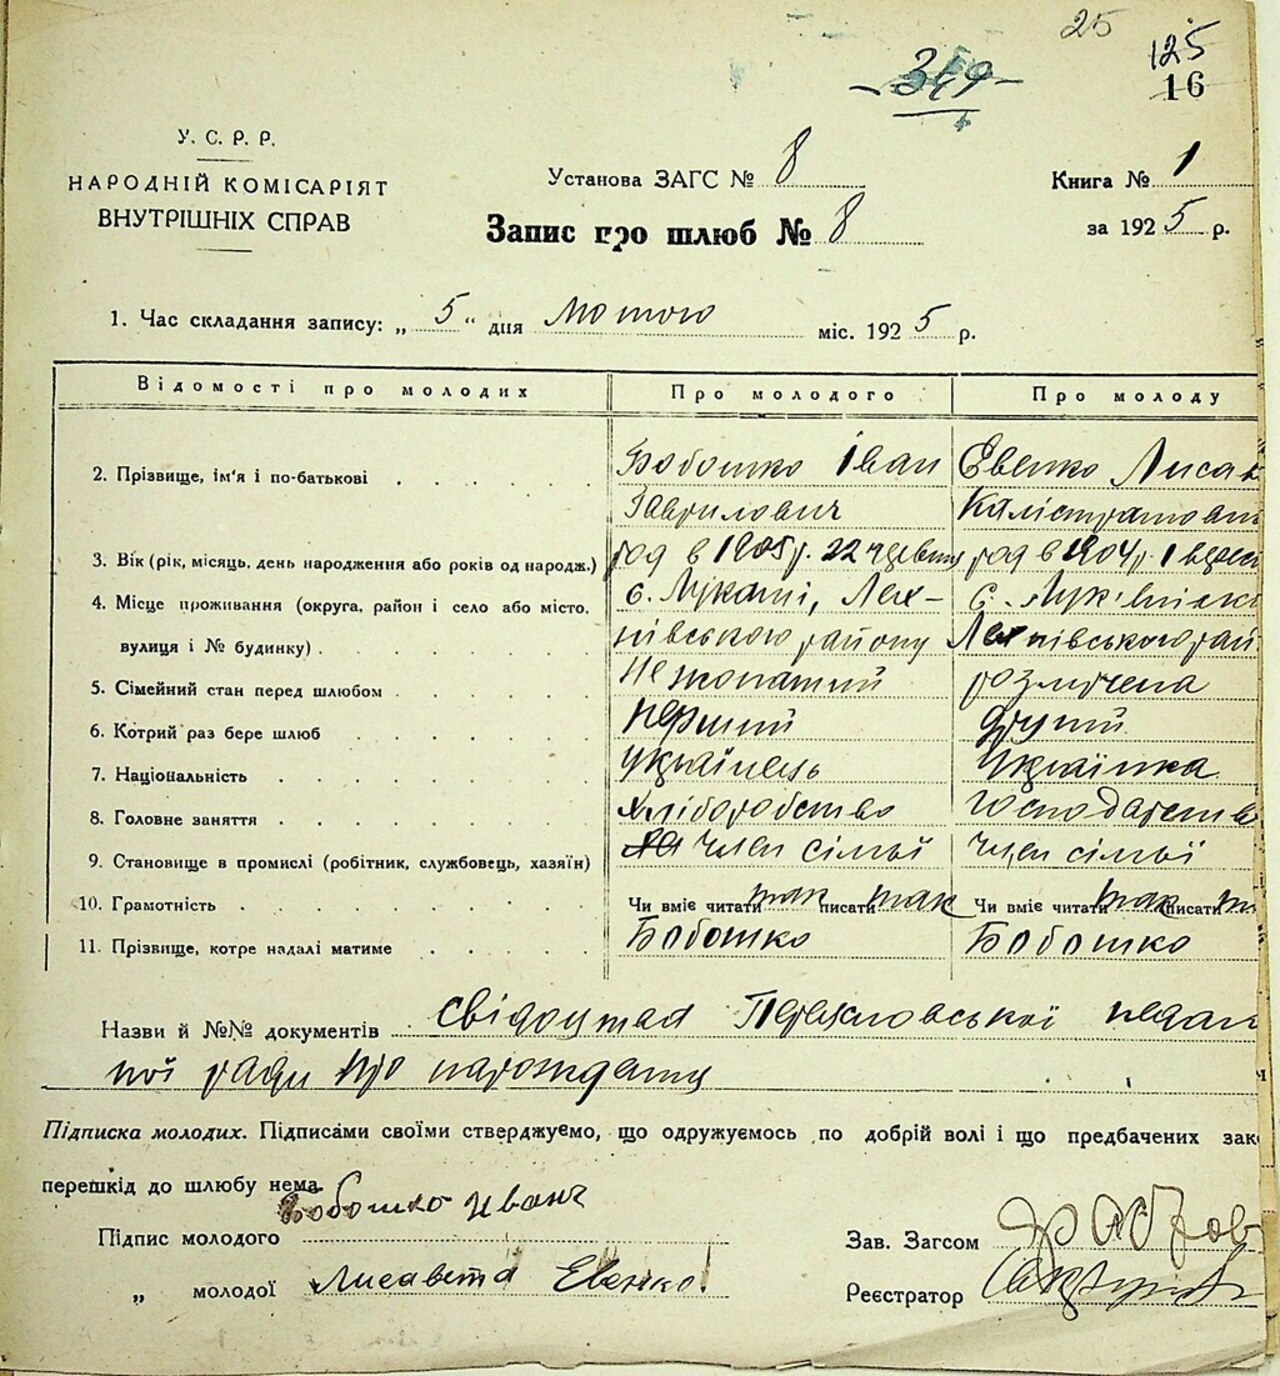 25
125
16
349
У. С. Р. Р.
НАРОДНІЙ КОМІСАРІЯТ
ВНУТРІШНІХ СПРАВ
Установа ЗАГС № 8
Книга № 1
Запис про шлюб № 8
за 1925 р.
1. Час складання запису: „ 5 “ дня лютого міс. 1925 р.
Відомості про молодих Про молодого Про молоду
2. Прізвище, ім'я і по-батькові Бобошко Іван Евенко Лисав
Гаврилович Калістратовн
3. Вік (рік, місяць, день народження або років од народж.) род в 1905 р. 22 род в 1904 р. 1
4. Місце проживання (округа, район і село або місто, с. Лукаші, Лех- с.
вулиця і № будинку) нівського району Лехнівського рай
5. Сімейний стан перед шлюбом Не жонатий розлучена
6. Котрий раз бере шлюб перший другий
7. Національність Українець Українка
8. Головне заняття хліборобство господарств
9. Становище в промислі (робітник, службовець, хазяїн) член сімьї член сімьї
10. Грамотність Чи вміє читати так писати так Чи вміє читати так писати
11. Прізвище, котре надалі матиме Бобошко Бобошко
Назви й №№ документів свідоцтва
ної ради про народження
Підписка молодих. Підписами своїми стверджуємо, що одружуємось по добрій волі і що предбачених зак
перешкід до шлюбу нема.
Підпис молодого Бобошко Иван
Зав. Загсом
„ молодої Лисавета Евенко
Реєстратор